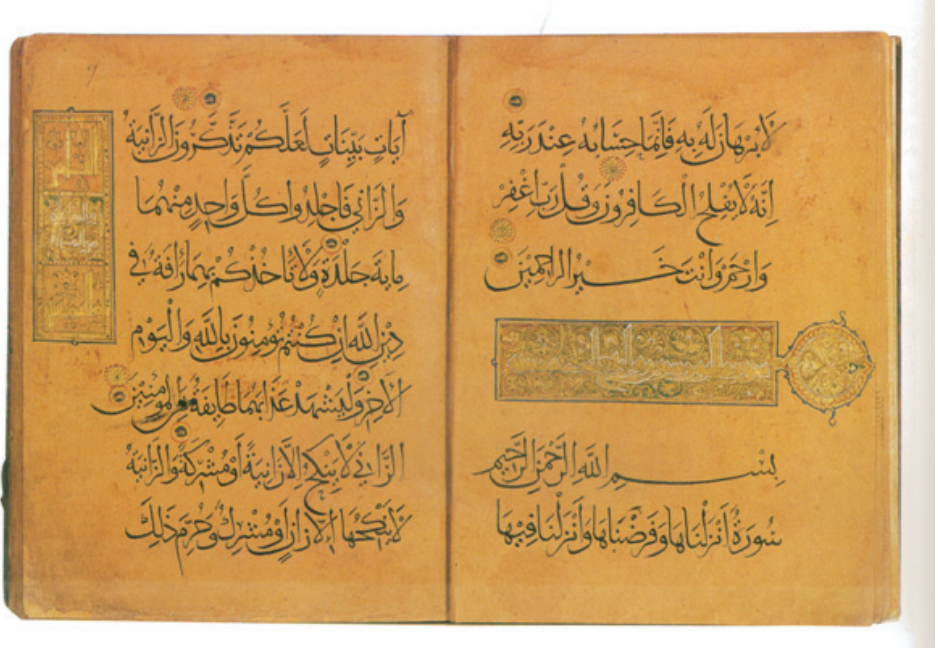 لَا بُرْهَانَ لَهُ بِهِ فَإِنَّمَا حِسَابُهُ عِنْدَ رَبِّهِ
إِنَّهُ لَا يُفْلِحُ الْكَافِرُونَ وَقُلْ رَبِّ اغْفِرْ
وَارْحَمْ وَأَنْتَ خَيْرُ الرَّاحِمِينَ
بِسْمِ اللَّهِ الرَّحْمَنِ الرَّحِيمِ
سُورَةٌ أَنْزَلْنَاهَا وَفَرَضْنَاهَا وَأَنْزَلْنَا فِيهَا
آيَاتٍ بَيِّنَاتٍ لَعَلَّكُمْ تَذَكَّرُونَ الزَّانِيَةُ
وَالزَّانِي فَاجْلِدُوا كُلَّ وَاحِدٍ مِنْهُمَا
مِايَةَ جَلْدَةٍ وَلَا تَأْخُذْكُمْ بِهِمَا رَأْفَةٌ فِي
دِينِ اللَّهِ إِنْ كُنْتُمْ تُؤْمِنُونَ بِاللَّهِ وَالْيَوْمِ
الْآخِرِ وَلْيَشْهَدْ عَذَابَهُمَا طَايِفَةٌ مِنَ الْمُؤْمِنِينَ
الزَّانِي لَا يَنْكِحُ إِلَّا زَانِيَةً أَوْ مُشْرِكَةً وَالزَّانِيَةُ
لَا يَنْكِحُهَا إِلَّا زَانٍ أَوْ مُشْرِكٌ وَحُرِّمَ ذَلِكَ